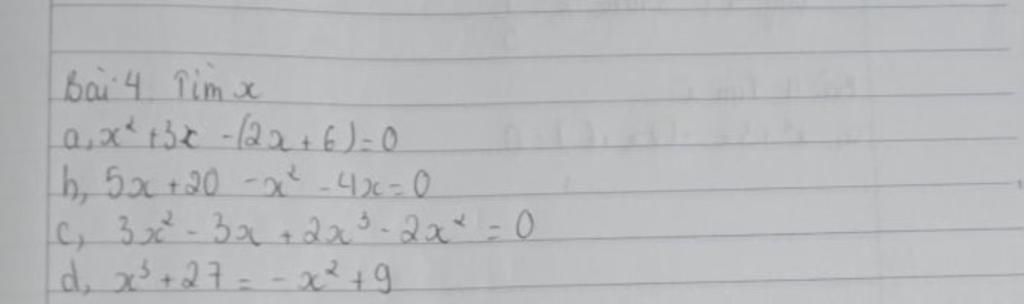 Bài 4. Tìm x
a, x² + 3x - (2x + 6) = 0
b, 5x + 20 - x² - 4x = 0
c, 3x² - 3x + 2x³ - 2x² = 0
d, x³ + 27 = - x² + 9